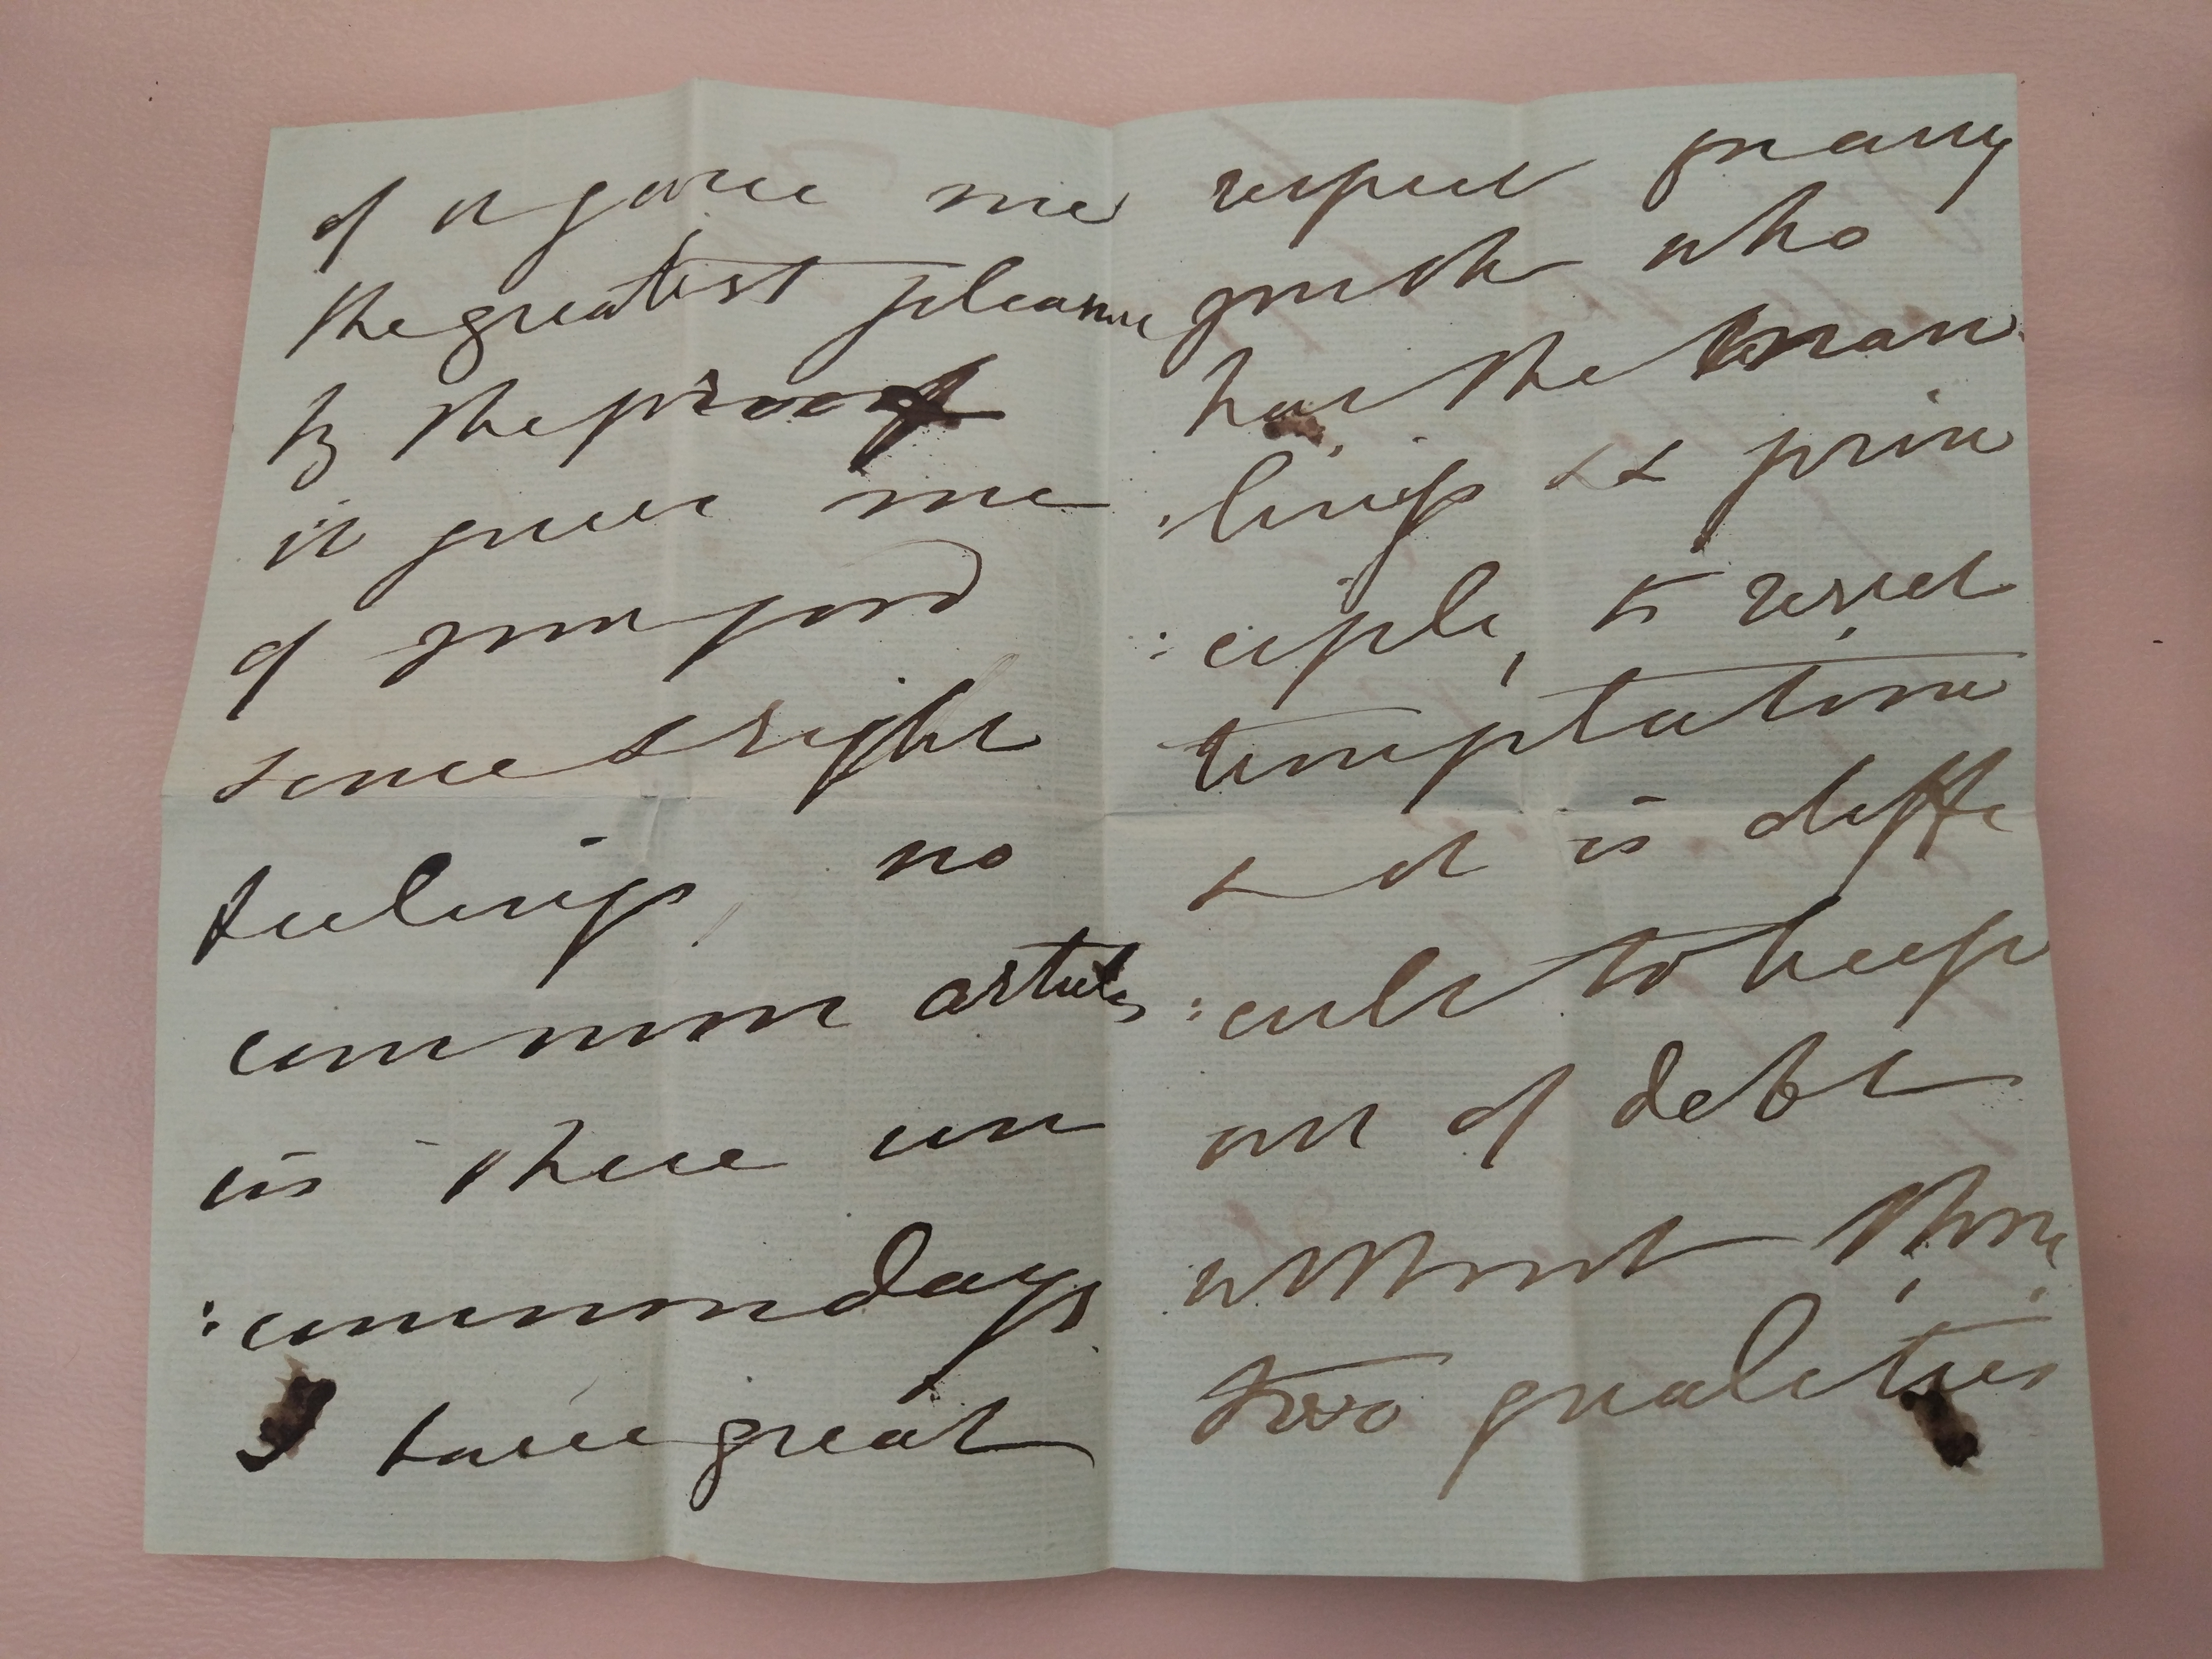 of it gave me
the greatest pleasure
by the proof
it gives me
of your good
sense & right
feelings, no
common articles
in these un
:common days
I have great
respect for any
youth who
has the man
:liness & prin
:ciple, to resist
temptation
& it is diffi
:cult to keep
out of debt
without those
two qualities